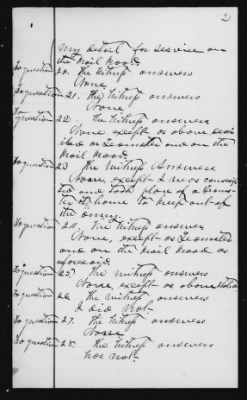 2
my detail for service on
the Rail Road.
To question 20. The Witness answers
None
To question 21. The Witness answers
None
To question 22. The Witness answers
None except as above descri
bed as Teamster and on the
Rail Road
To question 23 The Witness Answers
None, except I was conscrip
ted and took place of a Teams
ter at home to keep out of
the army.
To question 24. The Witness answers
None, except as Teamster
and on the Rail Road as
aforesaid.
To question 25. The Witness answers
None, except as above stated
To question 26 The Witness answers
I did not.
To question 27. The Witness answers
None
To question 28. The Witness answers
not.